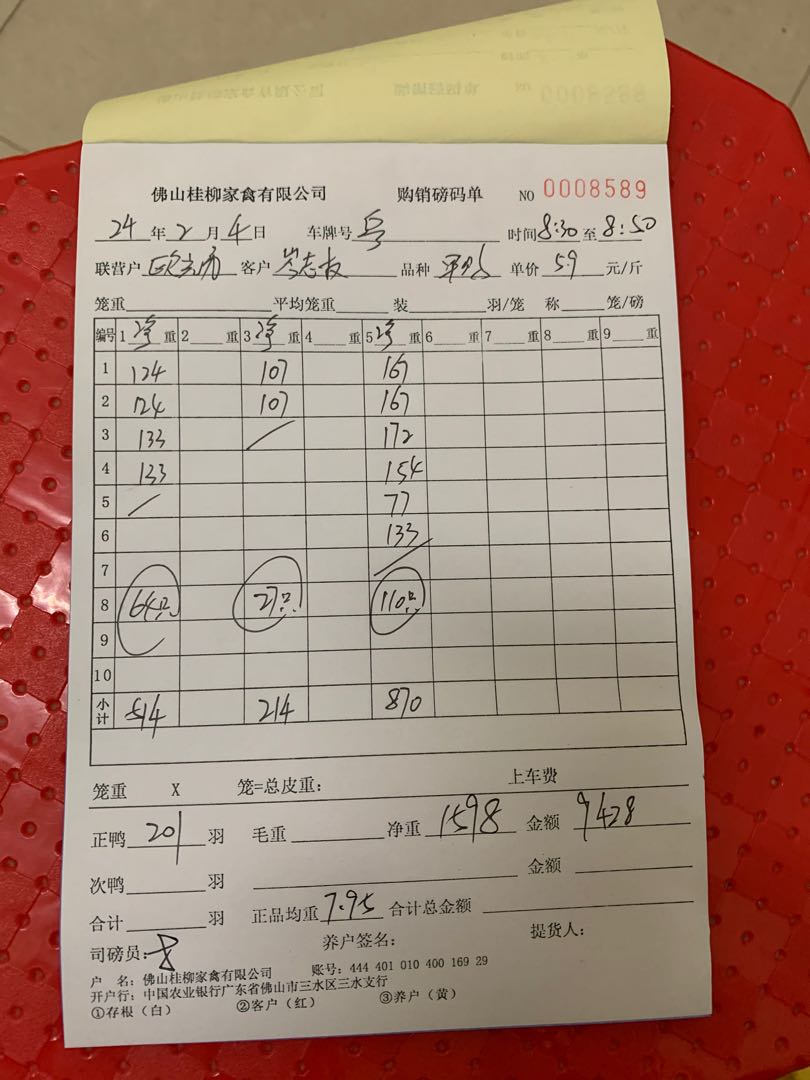 佛山桂柳家禽有限公司 购销磅码单 NO 0008589
24年2月4日 车牌号 时间8:30至8:50
联营户 客户 品种 单价 5.9 元/斤
笼重 平均笼重 装 羽/笼 称 笼/磅
编号 1 净 重 2 重 3 净 重 4 重 5 净 重 6 重 7 重 8 重 9 重
1 124 107 167
2 124 107 167
3 133 172
4 133 154
5 77
6 133
7
8 64只 27只 110只
9
10
小计 514 214 870
笼重 X 笼=总皮重: 上车费
正鸭 201 羽 毛重 净重 1598 金额 9428
次鸭 羽 金额
合计 羽 正品均重 7.95 合计总金额
司磅员: 养户签名: 提货人:
户 名: 佛山桂柳家禽有限公司 账号: 444 401 010 400 169 29
开户行: 中国农业银行广东省佛山市三水区三水支行
①存根(白) ②客户(红) ③养户(黄)